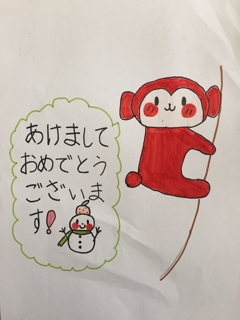 あけまして
おめでとう
ございま
す!